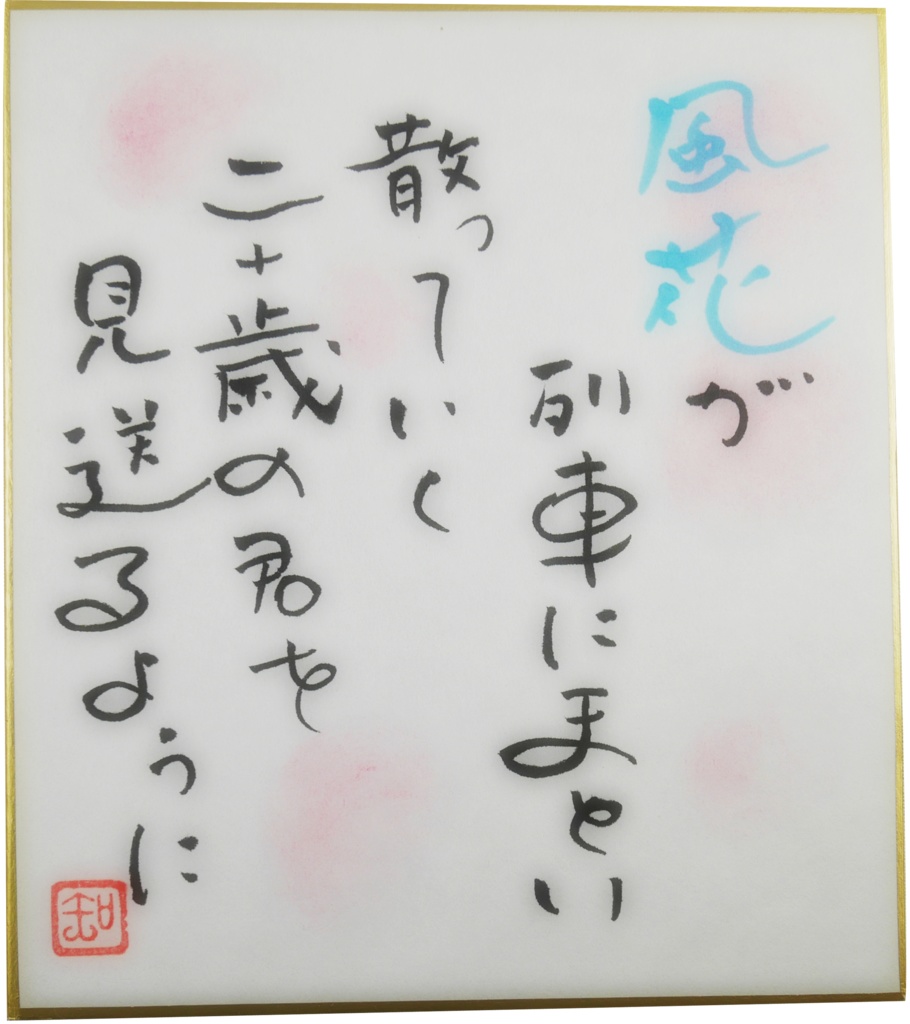 風花が
列車にまとい
散っていく
二十歳の君を
見送るように
知